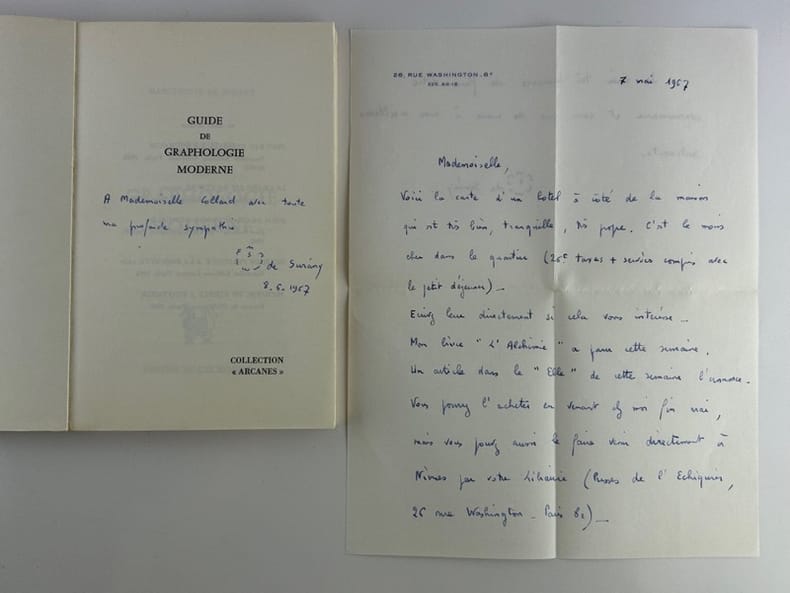 GUIDE
DE
GRAPHOLOGIE
MODERNE
A Mademoiselle Collard avec toute
ma profonde sympathie
de Surány
8.6.1967
COLLECTION
« ARCANES »
26, RUE WASHINGTON. 8e
7 mai 1967
Mademoiselle,
Voici la carte d'un hotel à côté de la maison
qui est très bien, tranquille, très propre. C'est le moins
cher dans le quartier (26F taxes + services compris avec
le petit déjeuner) _
Ecrivez leur directement si cela vous intéresse _
Mon livre "L'Alchimie" a paru cette semaine.
Un article dans le "Elle" de cette semaine l'annonce.
Vous pourrez l'acheter en venant chez moi fin mai,
mais vous pouvez aussi le faire venir directement à
Nîmes par votre librairie (Presses de l'Echiquier,
26 rue Washington _ Paris 8e) _